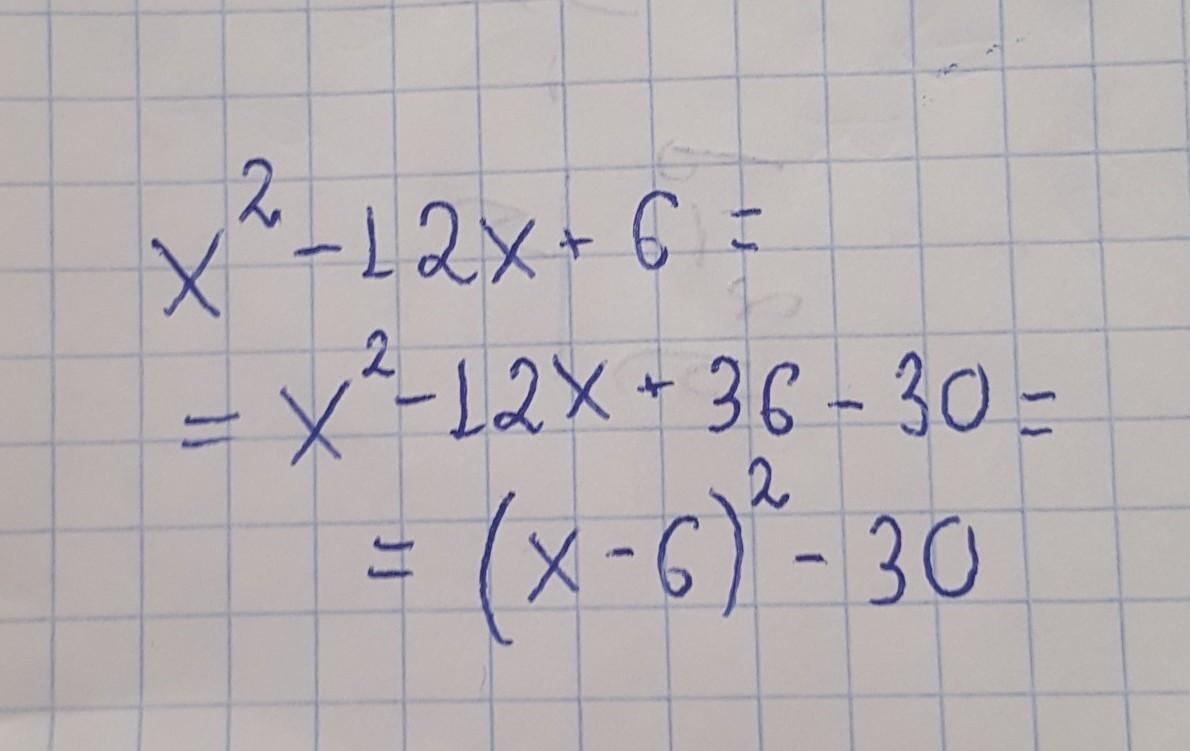 x² - 12x + 6 =
= x² - 12x + 36 - 30 =
= (x - 6)² - 30